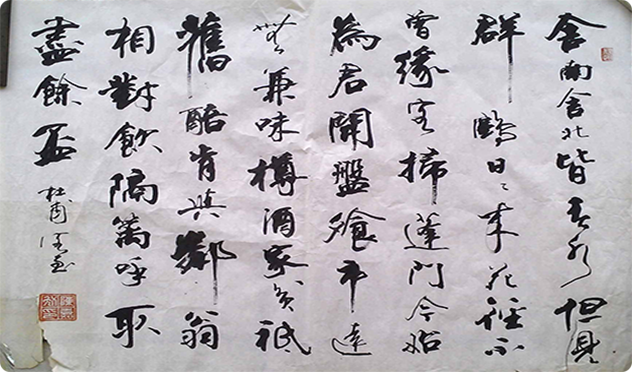 舍南舍北皆春水但見
群鷗日〻來花徑不
曾緣客掃蓬門今始
為君開盤飧市遠
無兼味樽酒家貧祗
舊醅肯與鄰翁
相對飲隔籬呼取
盡餘盃
杜甫